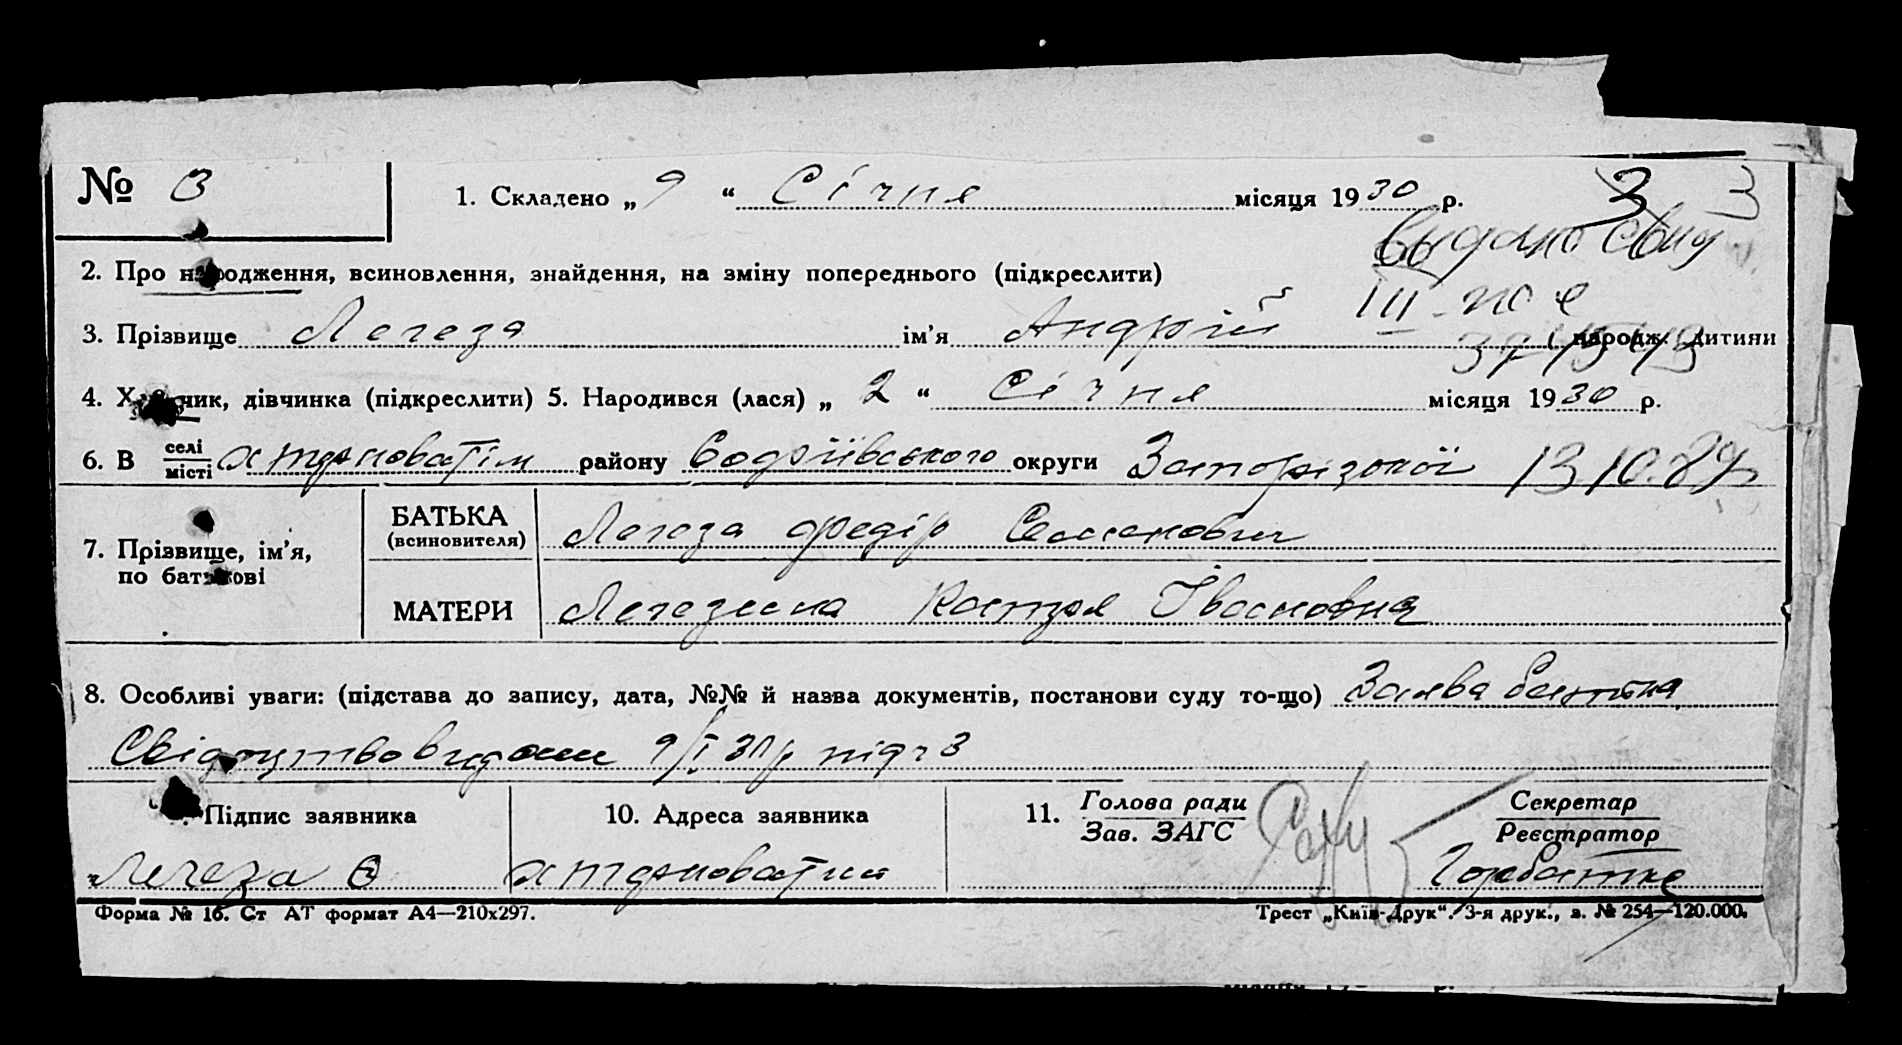 № 3
1. Складено „ 9 “ Січня місяця 1930 р. 3 3
видано свид
2. Про народження, всиновлення, знайдення, на зміну попереднього (підкреслити)
III-ПОЄ
3. Прізвище Легеза ім’я Андрій народж. дитини
4. Хлопчик, дівчинка (підкреслити) 5. Народився (лася) „ 2 “ Січня місяця 1930 р.
6. В селі місті району округи Запорізької 13 10.89
7. Прізвище, ім’я, по батькові
БАТЬКА (всиновителя) Легеза Федір Семенович
МАТЕРИ Івановна
8. Особливі уваги: (підстава до запису, дата, №№ й назва документів, постанови суду то-що) Заява батька
Свідоцтво видане 9/I 30р під ч 3
9. Підпис заявника 10. Адреса заявника 11. Голова ради Зав. ЗАГС Секретар Реєстратор
Легеза Ф
Форма № 16. Ст АТ формат А4—210х297. Трест „Київ-Друк“. 3-я друк., з. № 254—120.000.